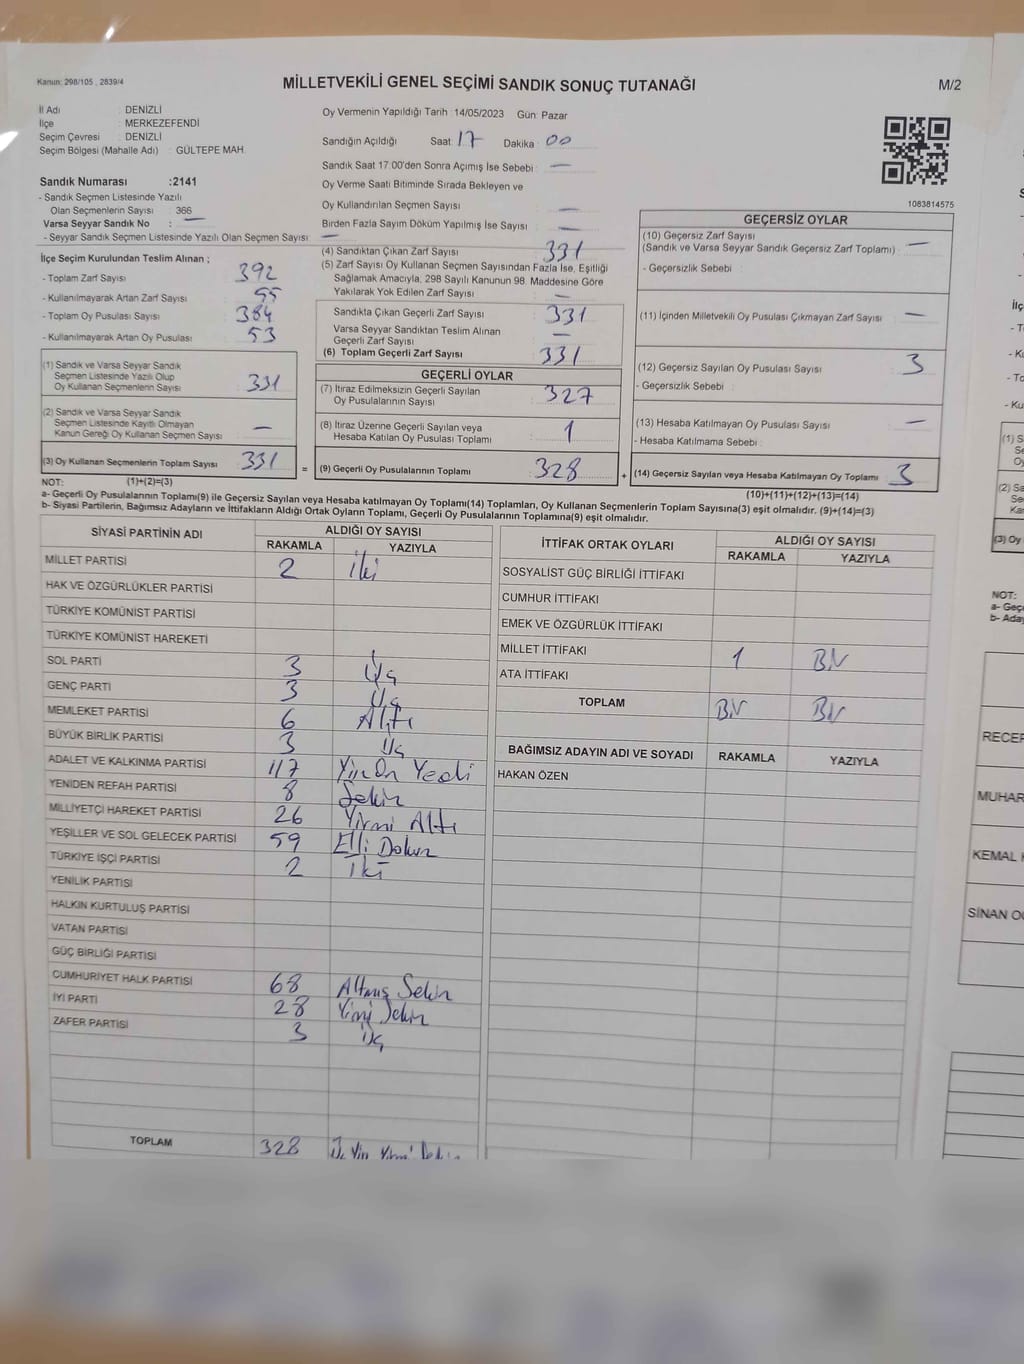 Kanun: 298/105 , 2839/4
MİLLETVEKİLİ GENEL SEÇİMİ SANDIK SONUÇ TUTANAĞI
M/2
İl Adı : DENİZLİ
İlçe : MERKEZEFENDİ
Seçim Çevresi : DENİZLİ
Seçim Bölgesi (Mahalle Adı) : GÜLTEPE MAH.
Sandık Numarası :2141
- Sandık Seçmen Listesinde Yazılı
Olan Seçmenlerin Sayısı : 366
Varsa Seyyar Sandık No : —
- Seyyar Sandık Seçmen Listesinde Yazılı Olan Seçmen Sayısı: —
Oy Vermenin Yapıldığı Tarih : 14/05/2023 Gün: Pazar
Sandığın Açıldığı Saat: 17 Dakika : 00
Sandık Saat 17:00'den Sonra Açımış İse Sebebi : —
Oy Verme Saati Bitiminde Sırada Bekleyen ve
Oy Kullandırılan Seçmen Sayısı : —
Birden Fazla Sayım Döküm Yapılmış İse Sayısı : —
1083814575
İlçe Seçim Kurulundan Teslim Alınan ;
- Toplam Zarf Sayısı : 392
- Kullanılmayarak Artan Zarf Sayısı :
- Toplam Oy Pusulası Sayısı : 384
- Kullanılmayarak Artan Oy Pusulası : 53
(1) Sandık ve Varsa Seyyar Sandık
Seçmen Listesinde Yazılı Olup
Oy Kullanan Seçmenlerin Sayısı : 331
(2) Sandık ve Varsa Seyyar Sandık
Seçmen Listesinde Kayıtlı Olmayan
Kanun Gereği Oy Kullanan Seçmen Sayısı : —
(3) Oy Kullanan Seçmenlerin Toplam Sayısı : 331 =
(4) Sandıktan Çıkan Zarf Sayısı : 331
(5) Zarf Sayısı Oy Kullanan Seçmen Sayısından Fazla İse, Eşitliği
Sağlamak Amacıyla, 298 Sayılı Kanunun 98. Maddesine Göre
Yakılarak Yok Edilen Zarf Sayısı : —
Sandıkta Çıkan Geçerli Zarf Sayısı : 331
Varsa Seyyar Sandıktan Teslim Alınan
Geçerli Zarf Sayısı : —
(6) Toplam Geçerli Zarf Sayısı : 331
GEÇERLİ OYLAR
(7) İtiraz Edilmeksizin Geçerli Sayılan
Oy Pusulalarının Sayısı : 327
(8) İtiraz Üzerine Geçerli Sayılan veya
Hesaba Katılan Oy Pusulası Toplamı : 1
(9) Geçerli Oy Pusulalarının Toplamı : 328 +
GEÇERSİZ OYLAR
(10) Geçersiz Zarf Sayısı
(Sandık ve Varsa Seyyar Sandık Geçersiz Zarf Toplamı) : —
- Geçersizlik Sebebi :
(11) İçinden Milletvekili Oy Pusulası Çıkmayan Zarf Sayısı : —
(12) Geçersiz Sayılan Oy Pusulası Sayısı : 3
- Geçersizlik Sebebi :
(13) Hesaba Katılmayan Oy Pusulası Sayısı : —
- Hesaba Katılmama Sebebi :
(14) Geçersiz Sayılan veya Hesaba Katılmayan Oy Toplamı : 3
NOT: (1)+(2)=(3)
(10)+(11)+(12)+(13)=(14)
a- Geçerli Oy Pusulalarının Toplamı(9) ile Geçersiz Sayılan veya Hesaba katılmayan Oy Toplamı(14) Toplamları, Oy Kullanan Seçmenlerin Toplam Sayısına(3) eşit olmalıdır. (9)+(14)=(3)
b- Siyasi Partilerin, Bağımsız Adayların ve İttifakların Aldığı Ortak Oyların Toplamı, Geçerli Oy Pusulalarının Toplamına(9) eşit olmalıdır.
SİYASİ PARTİNİN ADI ALDIĞI OY SAYISI
RAKAMLA YAZIYLA
MİLLET PARTİSİ 2 iki
HAK VE ÖZGÜRLÜKLER PARTİSİ
TÜRKİYE KOMÜNİST PARTİSİ
TÜRKİYE KOMÜNİST HAREKETİ
SOL PARTİ 3 Üç
GENÇ PARTİ 3 Üç
MEMLEKET PARTİSİ 6 Altı
BÜYÜK BİRLİK PARTİSİ 3 Üç
ADALET VE KALKINMA PARTİSİ 117 Yüz On Yedi
YENİDEN REFAH PARTİSİ 8 Sekiz
MİLLİYETÇİ HAREKET PARTİSİ 26 Yirmi Altı
YEŞİLLER VE SOL GELECEK PARTİSİ 59 Elli Dokuz
TÜRKİYE İŞÇİ PARTİSİ 2 İki
YENİLİK PARTİSİ
HALKIN KURTULUŞ PARTİSİ
VATAN PARTİSİ
GÜÇ BİRLİĞİ PARTİSİ
CUMHURİYET HALK PARTİSİ 68 Altmış Sekiz
İYİ PARTİ 28 Yirmi Sekiz
ZAFER PARTİSİ 3 Üç
TOPLAM 328
İTTİFAK ORTAK OYLARI ALDIĞI OY SAYISI
RAKAMLA YAZIYLA
SOSYALİST GÜÇ BİRLİĞİ İTTİFAKI
CUMHUR İTTİFAKI
EMEK VE ÖZGÜRLÜK İTTİFAKI
MİLLET İTTİFAKI 1 Bir
ATA İTTİFAKI
TOPLAM Bir Bir
BAĞIMSIZ ADAYIN ADI VE SOYADI RAKAMLA YAZIYLA
HAKAN ÖZEN
NOT:
a- Geç
b- Aday
RECEP
MUHAR
KEMAL
SİNAN